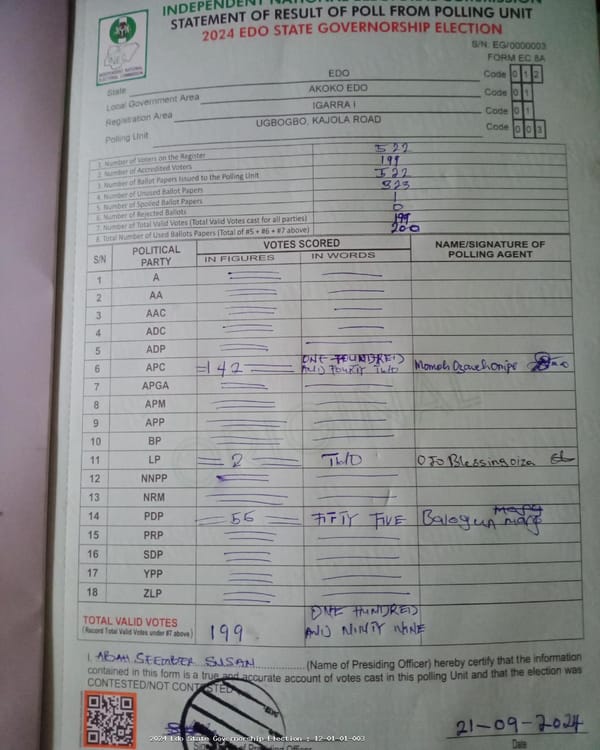 INDEPENDENT NATIONAL ELECTORAL COMMISSION
STATEMENT OF RESULT OF POLL FROM POLLING UNIT
2024 EDO STATE GOVERNORSHIP ELECTION
S/N: EG/0000003
FORM EC 8A
State EDO Code 0 1 2
Local Government Area AKOKO EDO Code 0 1
Registration Area IGARRA I Code 0 1
Polling Unit UGBOGBO, KAJOLA ROAD Code 0 0 3
1. Number of Voters on the Register 522
2. Number of Accredited Voters 199
3. Number of Ballot Papers Issued to the Polling Unit 522
4. Number of Unused Ballot Papers 323
5. Number of Spoiled Ballot Papers 1
6. Number of Rejected Ballots 0
7. Number of Total Valid Votes (Total Valid Votes cast for all parties) 199
8. Total Number of Used Ballots Papers (Total of #5 + #6 + #7 above) 200
S/N POLITICAL PARTY VOTES SCORED NAME/SIGNATURE OF POLLING AGENT
IN FIGURES IN WORDS
1 A
2 AA
3 AAC
4 ADC
5 ADP
6 APC 142 ONE HUNDRED AND FOURTY TWO Momoh
7 APGA
8 APM
9 APP
10 BP
11 LP 2 TWO OJO Blessing oiza
12 NNPP
13 NRM
14 PDP 55 FIFTY FIVE Balogun Mary
15 PRP
16 SDP
17 YPP
18 ZLP
TOTAL VALID VOTES 199 ONE HUNDRED AND NINTY NINE
(Record Total Valid Votes under #7 above)
I, ABAH SEEMBER SUSAN (Name of Presiding Officer) hereby certify that the information
contained in this form is a true and accurate account of votes cast in this polling Unit and that the election was
CONTESTED/NOT CONTESTED
21-09-2024
Date
2024 Edo State Governorship Election : 12-01-01-003